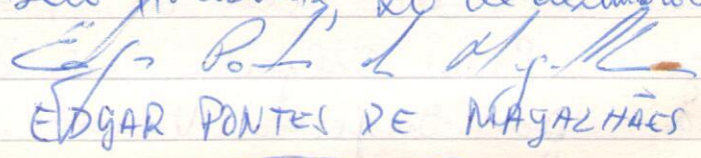 de
Edgar Pontes de Magalhães
EDGAR PONTES DE MAGALHÃES